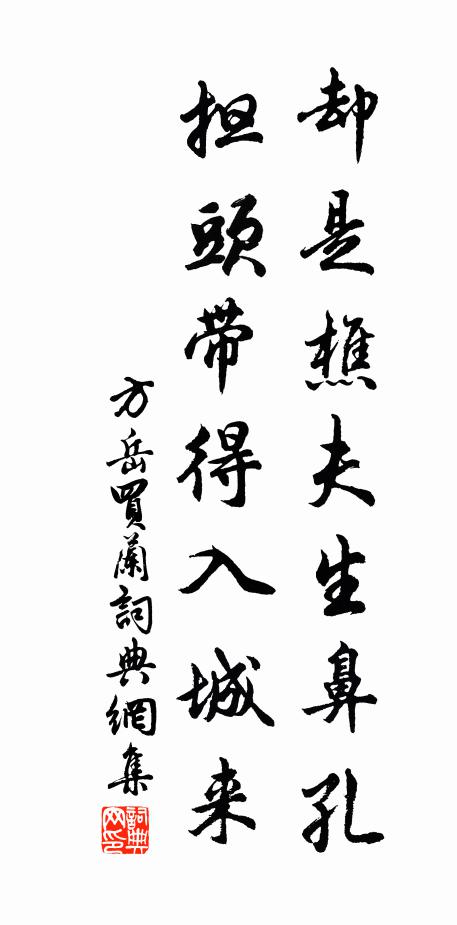 却是樵夫生鼻孔
担頭带得入城来
方岳買蘭詞典網集
詞典网印